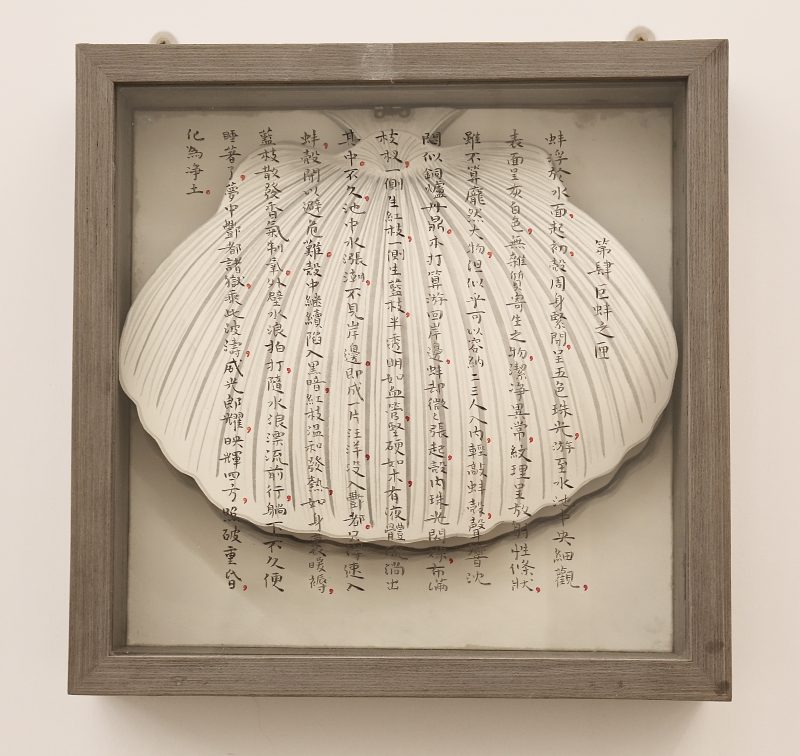 第肆 巨蚌之匣
蚌浮於水面起初殼周身緊閉，呈五色珠光，游至水池中央細觀，
表面呈灰白色，無雜質寄生之物，潔淨異常，紋理呈放射性條狀，
雖不算龐然大物，但似乎可以容納二三人入內，輕敲蚌殼，聲音沈
悶，似銅爐丹鼎，本打算游回岸邊，蚌却微微張起，殼內珠光閃爍，布滿
枝杈，一側生紅枝，一側生藍枝，半透明如血管，堅硬如木，有液體淌出
其中。不久，池中水漲潮，不見岸邊。即成一片汪洋，沒入酆都。速入
蚌殼，閉以避危難。殼中繼續陷入黑暗，紅枝溫和發熱，如身裹暖褥，
藍枝散發香氣，制氧。外壁水浪拍打，隨水浪漂流前行，躺下不久便
睡著了，夢中酆都諸獄，乘此波濤，威光郎耀，映輝四方，照破重昏，
化為淨土。